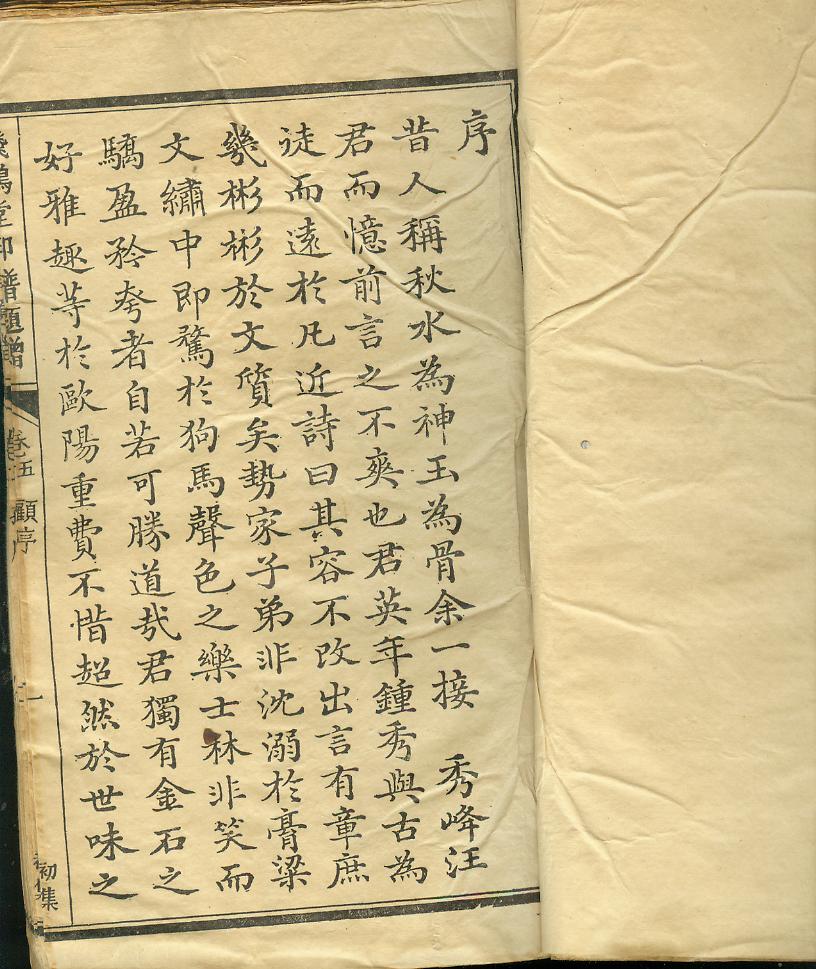 序
昔人稱秋水為神玉為骨余一接　秀峰汪
君而憶前言之不爽也君英年鍾秀與古為
徒而遠於凡近詩曰其容不改出言有章庶
幾彬彬於文質矣勢家子弟非沈溺於膏粱
文繡中即騖於狗馬聲色之樂士林非笑而
驕盈矜夸者自若可勝道哉君獨有金石之
好雅趣等於歐陽重費不惜超然於世味之
鴻堂印譜題贈
卷五
顧序
一
初集